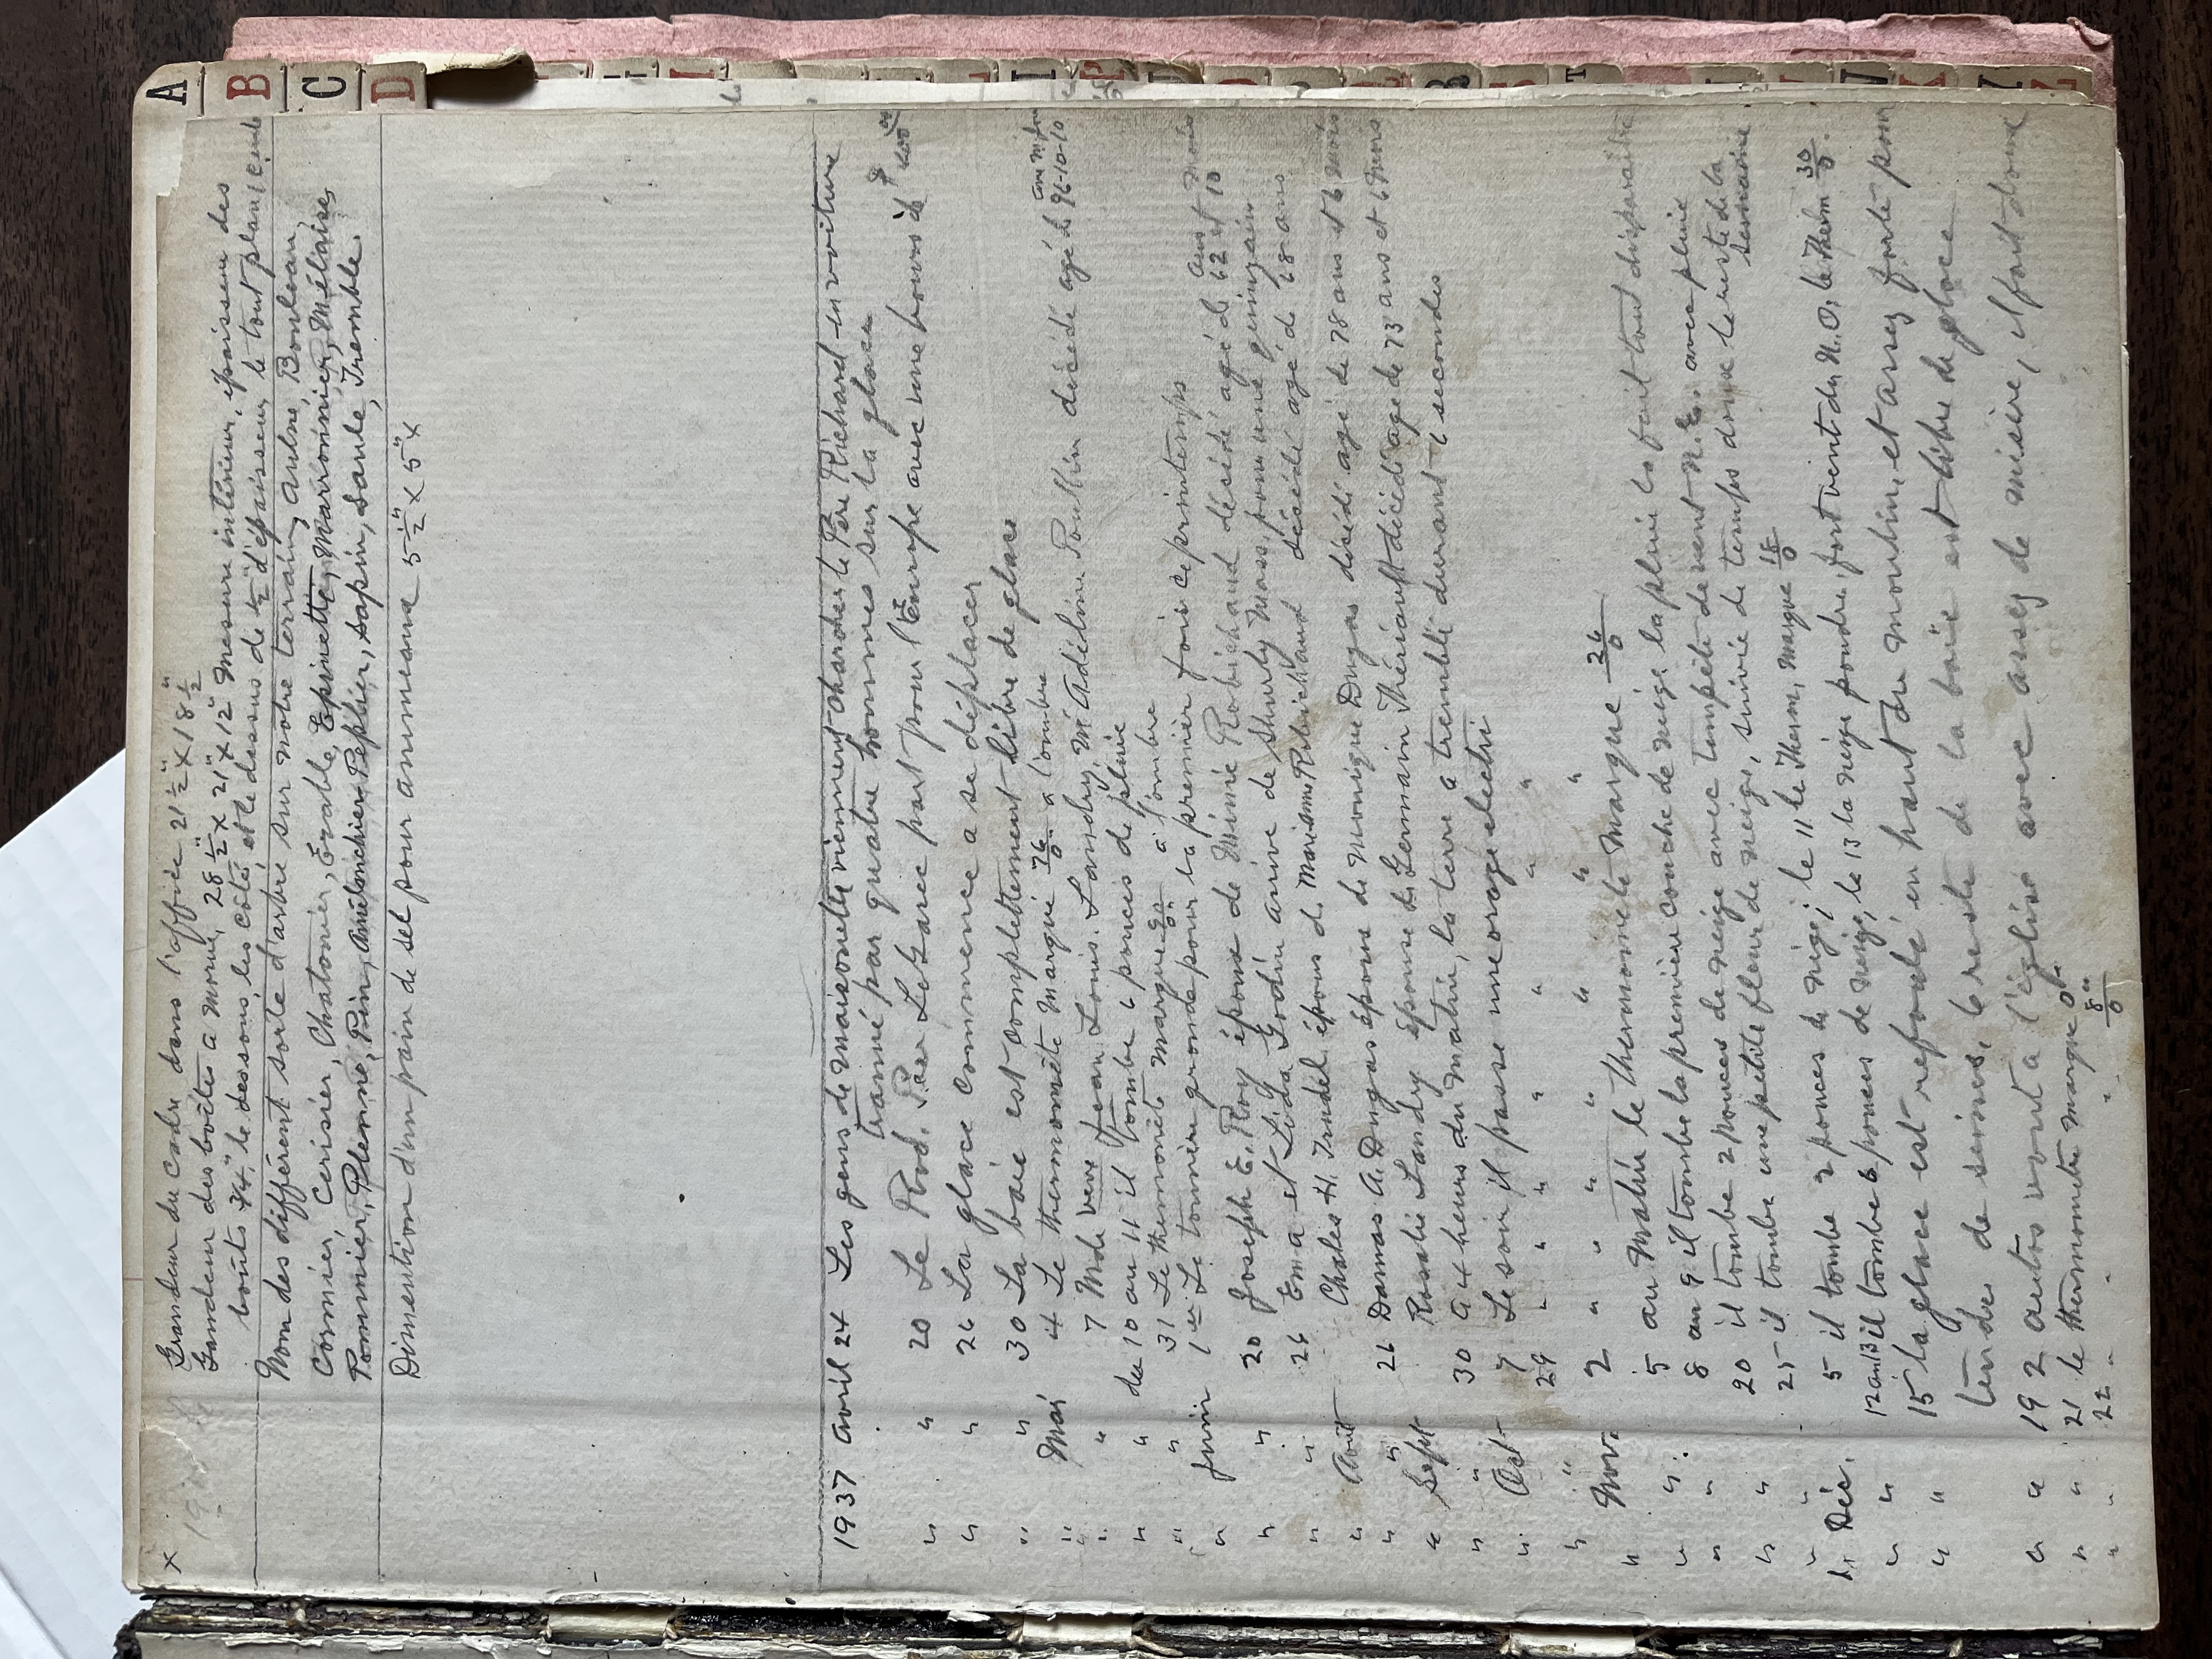 x Grandeur du Cadre dans l'affiée 21 1/2" x 18 1/2"
Grandeur des boîtes a morue, 28 1/2" x 21" x 12" Mesure intérieur, épaisseur des
bouts 3/4", le dessous, les cotés et le dessus de 1/2" d'épaisseur, le tout plané
Nom des différent sorte d'arbre sur notre terrain, aulne, Bouleau,
Cormier, Cerisier, Chatonier, Érable, Epinette, Marronnier, Mélaise,
Pommier, Plenne, Pin, Amélanchier, Peplier, sapin, Saule, Tremble.
Dimention d'un pain de sel pour anumeaux 5 1/2" x 5" x
1937 Avril 24 Les gens de Maisonette viennent charcher le Père Richard en voiture
trainé par quatre hommes sur la glace
" " 20 Le Rvd. Père LeGarec part pour l'Europe avec une bourse de
" " 26 La glace commence a se déplacer
" " 30 La baie est complettement libre de glace
" Mai 4 Le thermomètre marque 76/0 a l'ombre
" " 7 Mde veve Jean Louis Landry, né Adéline Poullin décédé agé de 96-10-10
" " du 10 au 11 il tombe 2 pouces de pluie
" " 31 Le thermomètre marque 90/0 à l'ombre
" Juin 1er Le tonnère gronde pour la premier fois ce printemps
" " 20 Joseph E. Roy épous de Minnie Robichaud décédé agé de 62 ans et 10 mois
" " 26 Ema et Lida Godin arive de Shurly Mass, pour une quinzain
" Août Charles H. Trudel épous de Marianne Robichaud décédé agé de 68 ans
" " 26 Damas A. Dugas épous de Monique Dugas décédé agé de 78 ans et 6 mois
" Sept Rosalie Landry épouse de Germain Thériault décédé agé de 73 ans et 6 mois
" " 30 a 4 heures du matin, la terre a tremblé durant 6 secondes
" Oct 7 Le soir il passe une orage electri
" " 29 " " " " " " "
" Nov. 2 " " " " " " "
" " 5 au Matin le thermomète marque 26/0
" " 8 au 9 il tombe la premier couche de neige la pluie la fait tout disparaître
" " 20 il tombe 2 pouces de neige avec tempête de vent N.E. avec pluie
" " 25 il tombe une petite fleur de neige, suivie de temps doux le reste de la semaine
" Déc. 5 il tombe 2 pouces de neige; le 11 le Therm, marque 18/0
" " 12 au 13 il tombe 6 pouces de neige, le 13 la neige poudre, fort vent du N.O, le Therm 30/0.
" " 15 la glace est refoulé en haut du moulin, et assez forte pour
tendre de seines, le reste de la baie est libre de glace
" " 19 2 autos vont a l'église avec assez de misère, il fait doux
" " 21 le thermomète marque 0°
" " 22 " " " 8"/0